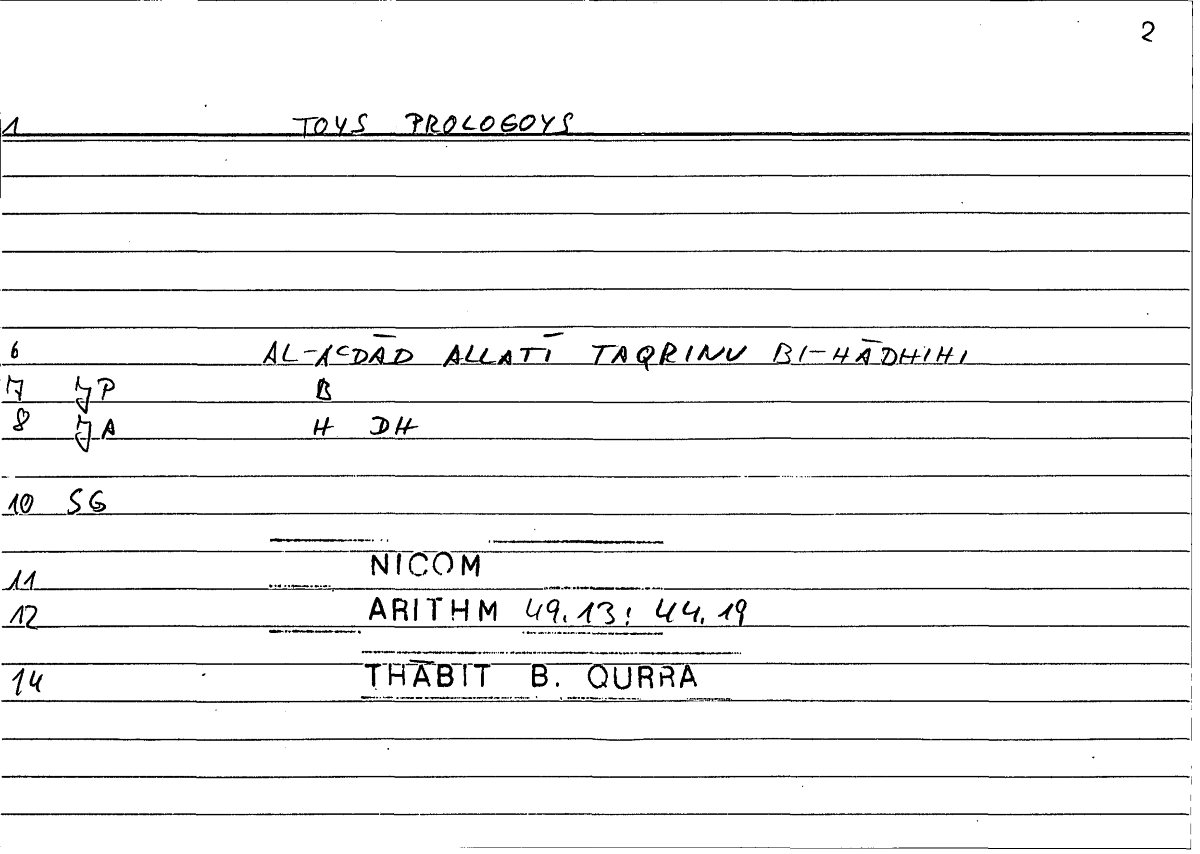 2
1 TOYS PROLOGOYS
6 AL-AᶜDĀD ALLATĪ TAQRINU BI-HĀDHIHI
7 JP B
8 JA H DH
10 SG
11 NICOM
12 ARITHM 49.13: 44.19
14 THĀBIT B. QURRA